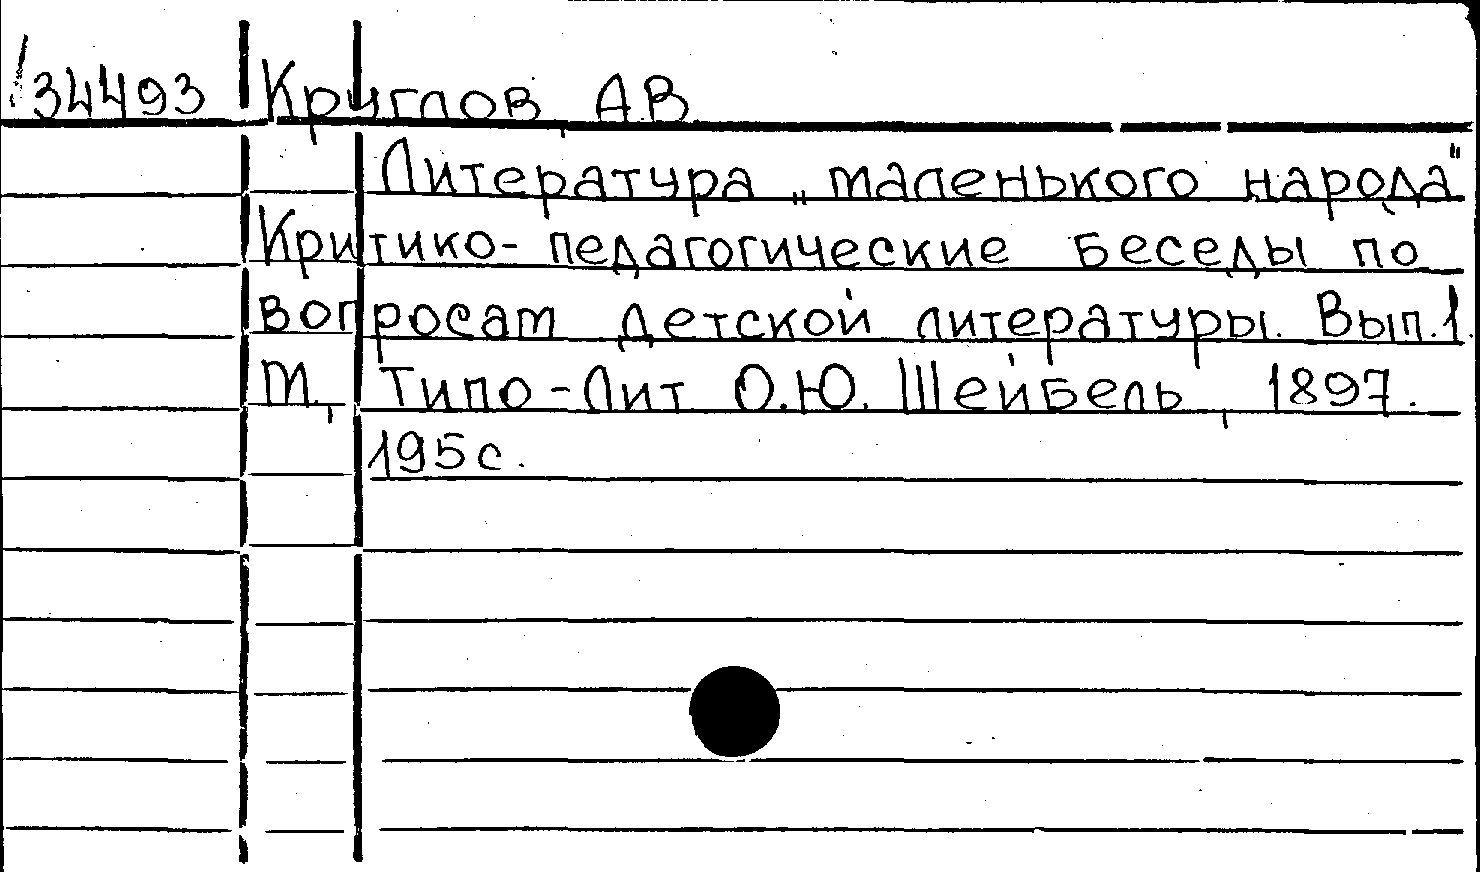 34493 Круглов, А.В.
Литература „маленького народа"
Критико-педагогические беседы по
вопросам детской литературы. Вып.1.
М., Типо-Лит О.Ю. Шейбель, 1897.
195с.